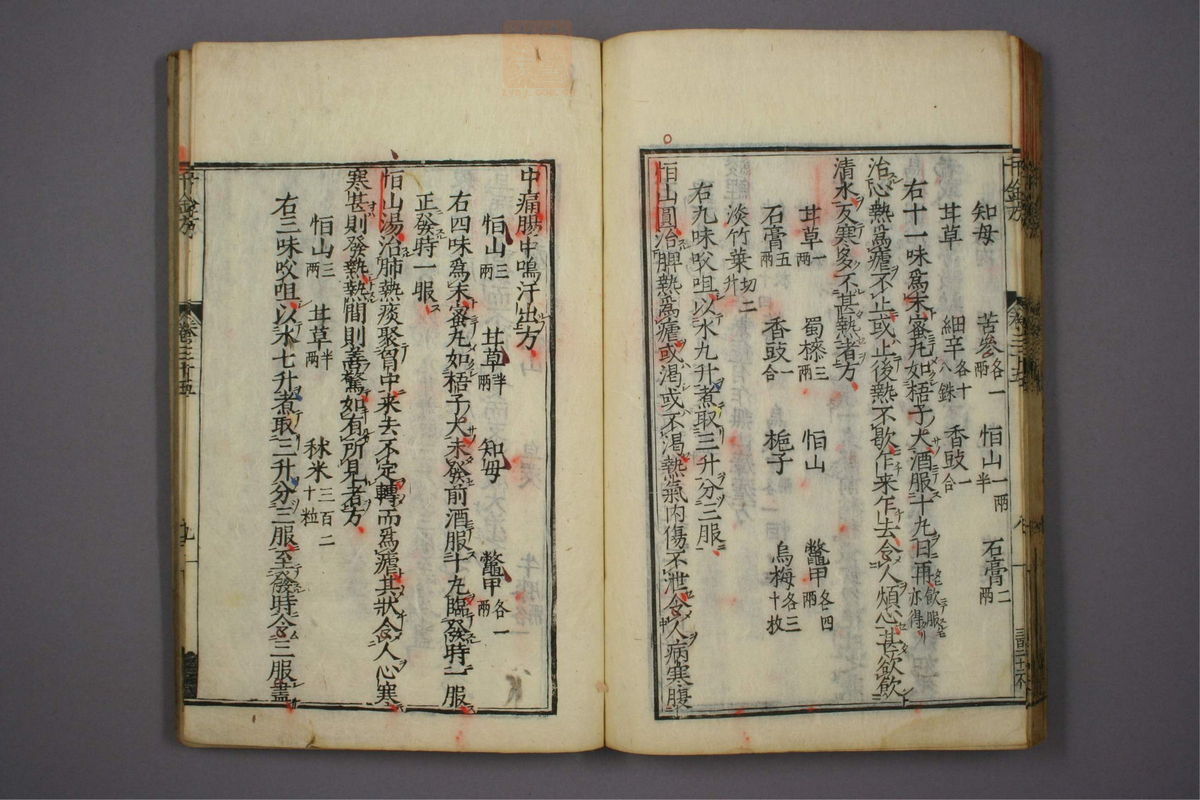 知母 苦參各一兩 恒山一兩半 石膏二兩
甘草 細辛各十八銖 香豉一合
右十一味爲末蜜丸如梧子大酒服十丸日再飲服亦得
治心熱爲瘧不止或止後熱不歇乍来乍去令人煩心甚欲飲
清水反寒多不甚熱者方
甘草一兩 蜀漆三兩 恒山 鼈甲各四兩
石膏五兩 香豉一合 梔子 烏梅各三十枚
淡竹葉切二升
右九味㕮咀以水九升煮取三升分三服
恒山圓治脾熱爲瘧或渴或不渴熱氣内傷不泄令人病寒腹
中痛腸中鳴汗出方
恒山三兩 甘草半兩 知母 鼈甲各一兩
右四味爲末蜜丸如梧子大未發前酒服十丸臨發時一服
正發時一服
恒山湯治肺熱痰聚胷中来去不定轉而爲瘧其状令人心寒
寒甚則發熱熱間則善驚如有所見者方
恒山三兩 甘草半兩 秫米三百二十粒
右三味㕮咀以水七升煮取三升分三服至發時令三服盡
千金方 卷三十五 九